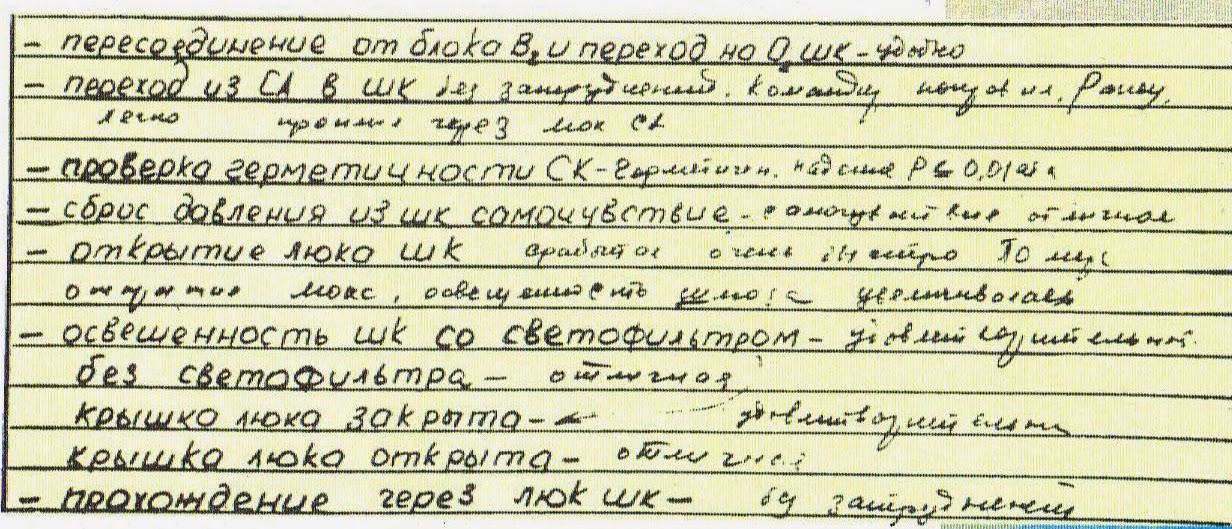 - пересоединение от блока В₂ и переход на О₂ шк - удобно
- переход из СА в шк без затруднений. Команду
легко через люк СА
- проверка герметичности СК - герметичн. падение Р ≤ 0,01 ат
- сброс давления из шк самочувствие - самочувствие отличное
- открытие люка шк сработал очень быстро По мере
открытия люка, освещенность шлюза увеличивалась
- освешенность шк со светофильтром - удовлетворительная
без светофильтра - отличная
крышка люка закрыта - удовлетворительная
крышка люка открыта - отличная
- прохождение через люк шк - без затруднений